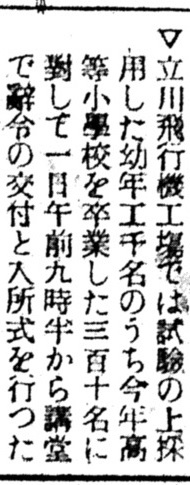 ▽立川飛行機工場では試験の上採
用した幼年工千名のうち今年高
等小學校を卒業した三百十名に
對して一日午前九時半から講堂
で辭令の交付と入所式を行つた